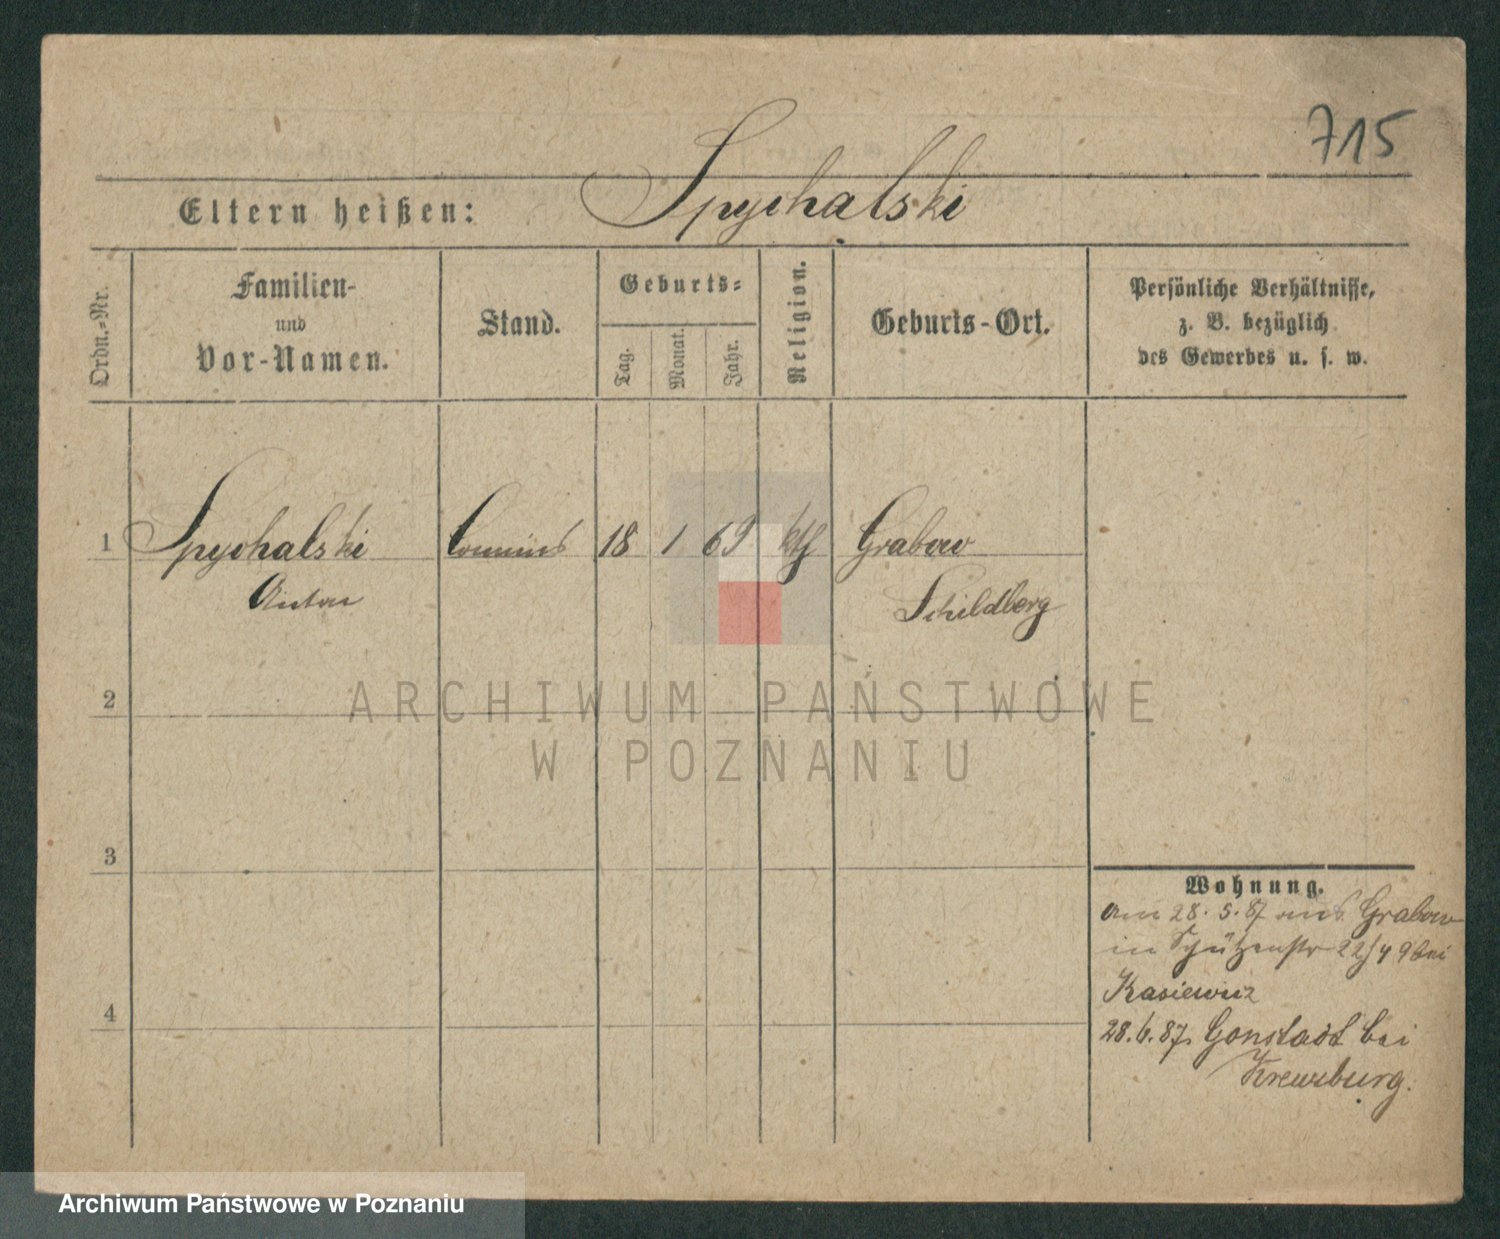 715
Eltern heißen: Spychalski
Ordn.=Nr.
Familien-
und
Vor-Namen.
Stand.
Geburts=
Tag.
Monat.
Jahr.
Religion.
Geburts-Ort.
Persönliche Verhältnisse,
z. B. bezüglich
des Gewerbes u. s. w.
1 Spychalski Commis 18 1 69 kth Grabow
Anton Schildberg
ARCHIWUM PAŃSTWOWE
W POZNANIU
2
3
4
Wohnung.
am 28. 5. 87 aus Grabow
in Schützenstr 22/49 bei
Kasiewicz
28.6.87. Constadt bei
Kreuzburg.
Archiwum Państwowe w Poznaniu